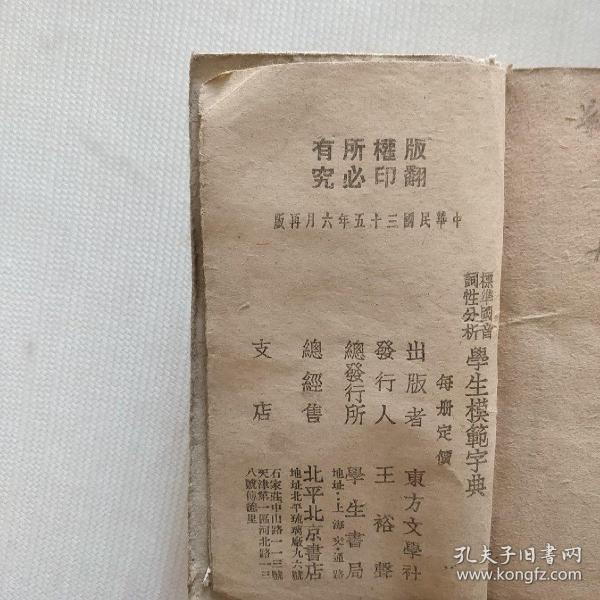 版權所有
翻印必究
中華民國三十五年六月再版
標準國音
詞性分析
學生模範字典
每册定價
出版者 東方文學社
發行人 王裕聲
總發行所 學生書局
地址:上海交通路
總經售 北平北京書店
地址北平琉璃廠九六號
支店
石家莊中山路一一三號
天津第一區河北路一三
八號傅德里
孔夫子旧书网
www.kongfz.com